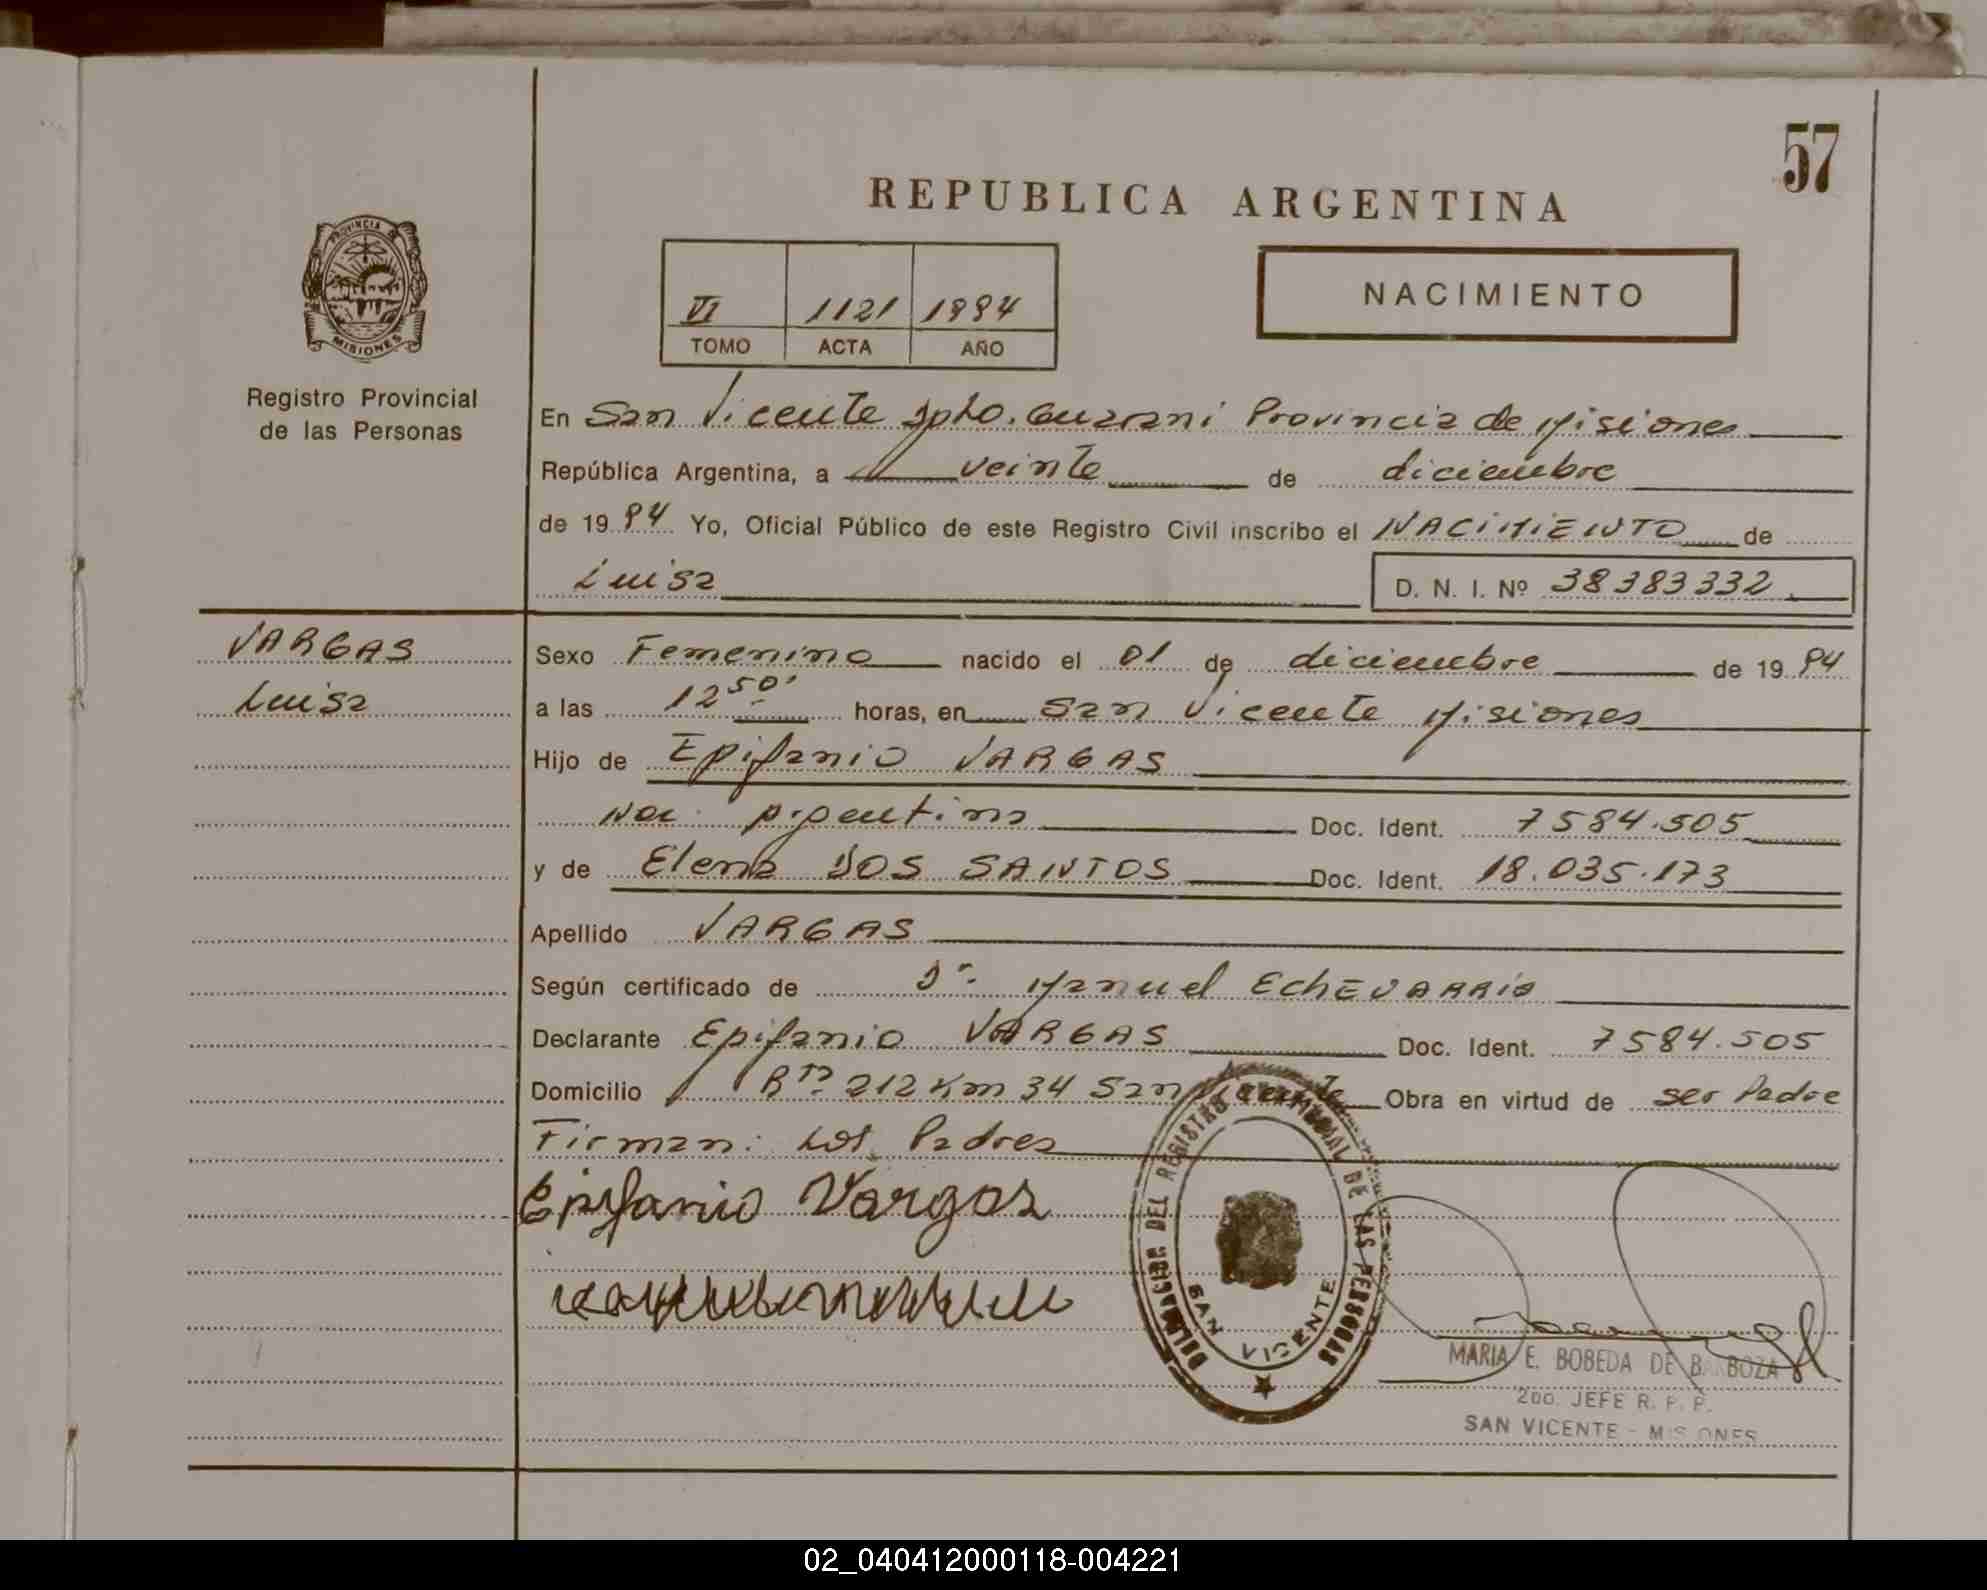 57
REPUBLICA ARGENTINA
PROVINCIA DE
MISIONES
NACIMIENTO
VI 1121 1994
TOMO ACTA AÑO
Registro Provincial
de las Personas
En San Vicente Dpto. Guarani Provincia de Misiones
República Argentina, a veinte de diciembre
de 1994 Yo, Oficial Público de este Registro Civil inscribo el NACIMIENTO de
Luisa D. N. I. Nº 38383332
VARGAS
Luisa
Sexo Femenino nacido el 01 de diciembre de 1994
a las 12 50' horas, en San Vicente Misiones
Hijo de Epifanio VARGAS
Nac. Argentina Doc. Ident. 7584.505
y de Elena DOS SANTOS Doc. Ident. 18.035.173
Apellido VARGAS
Según certificado de Dr. Manuel EchEVARRIA
Declarante Epifanio VARGAS Doc. Ident. 7584.505
Domicilio Rta 212 Km 34 San Vicente Obra en virtud de ser Padre
Firman: Los Padres
Epifanio Vargas
DELEGACION DEL REGISTRO PROVINCIAL DE LAS PERSONAS
SAN VICENTE
MARIA E. BOBEDA DE BARBOZA
2do. JEFE R. P. P.
SAN VICENTE - MISIONES
02_040412000118-004221